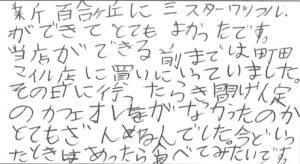 新百合ヶ丘にミスターワッフル.
ができてとてもよかったです。
当店ができる前までは町田
マイル店に買いにいっていました。
その日に行ったらき間げん定
のカフェオレながなかったのか
とてもざんめなんでした。今どいっ
たときはあったら食べてみたいです。